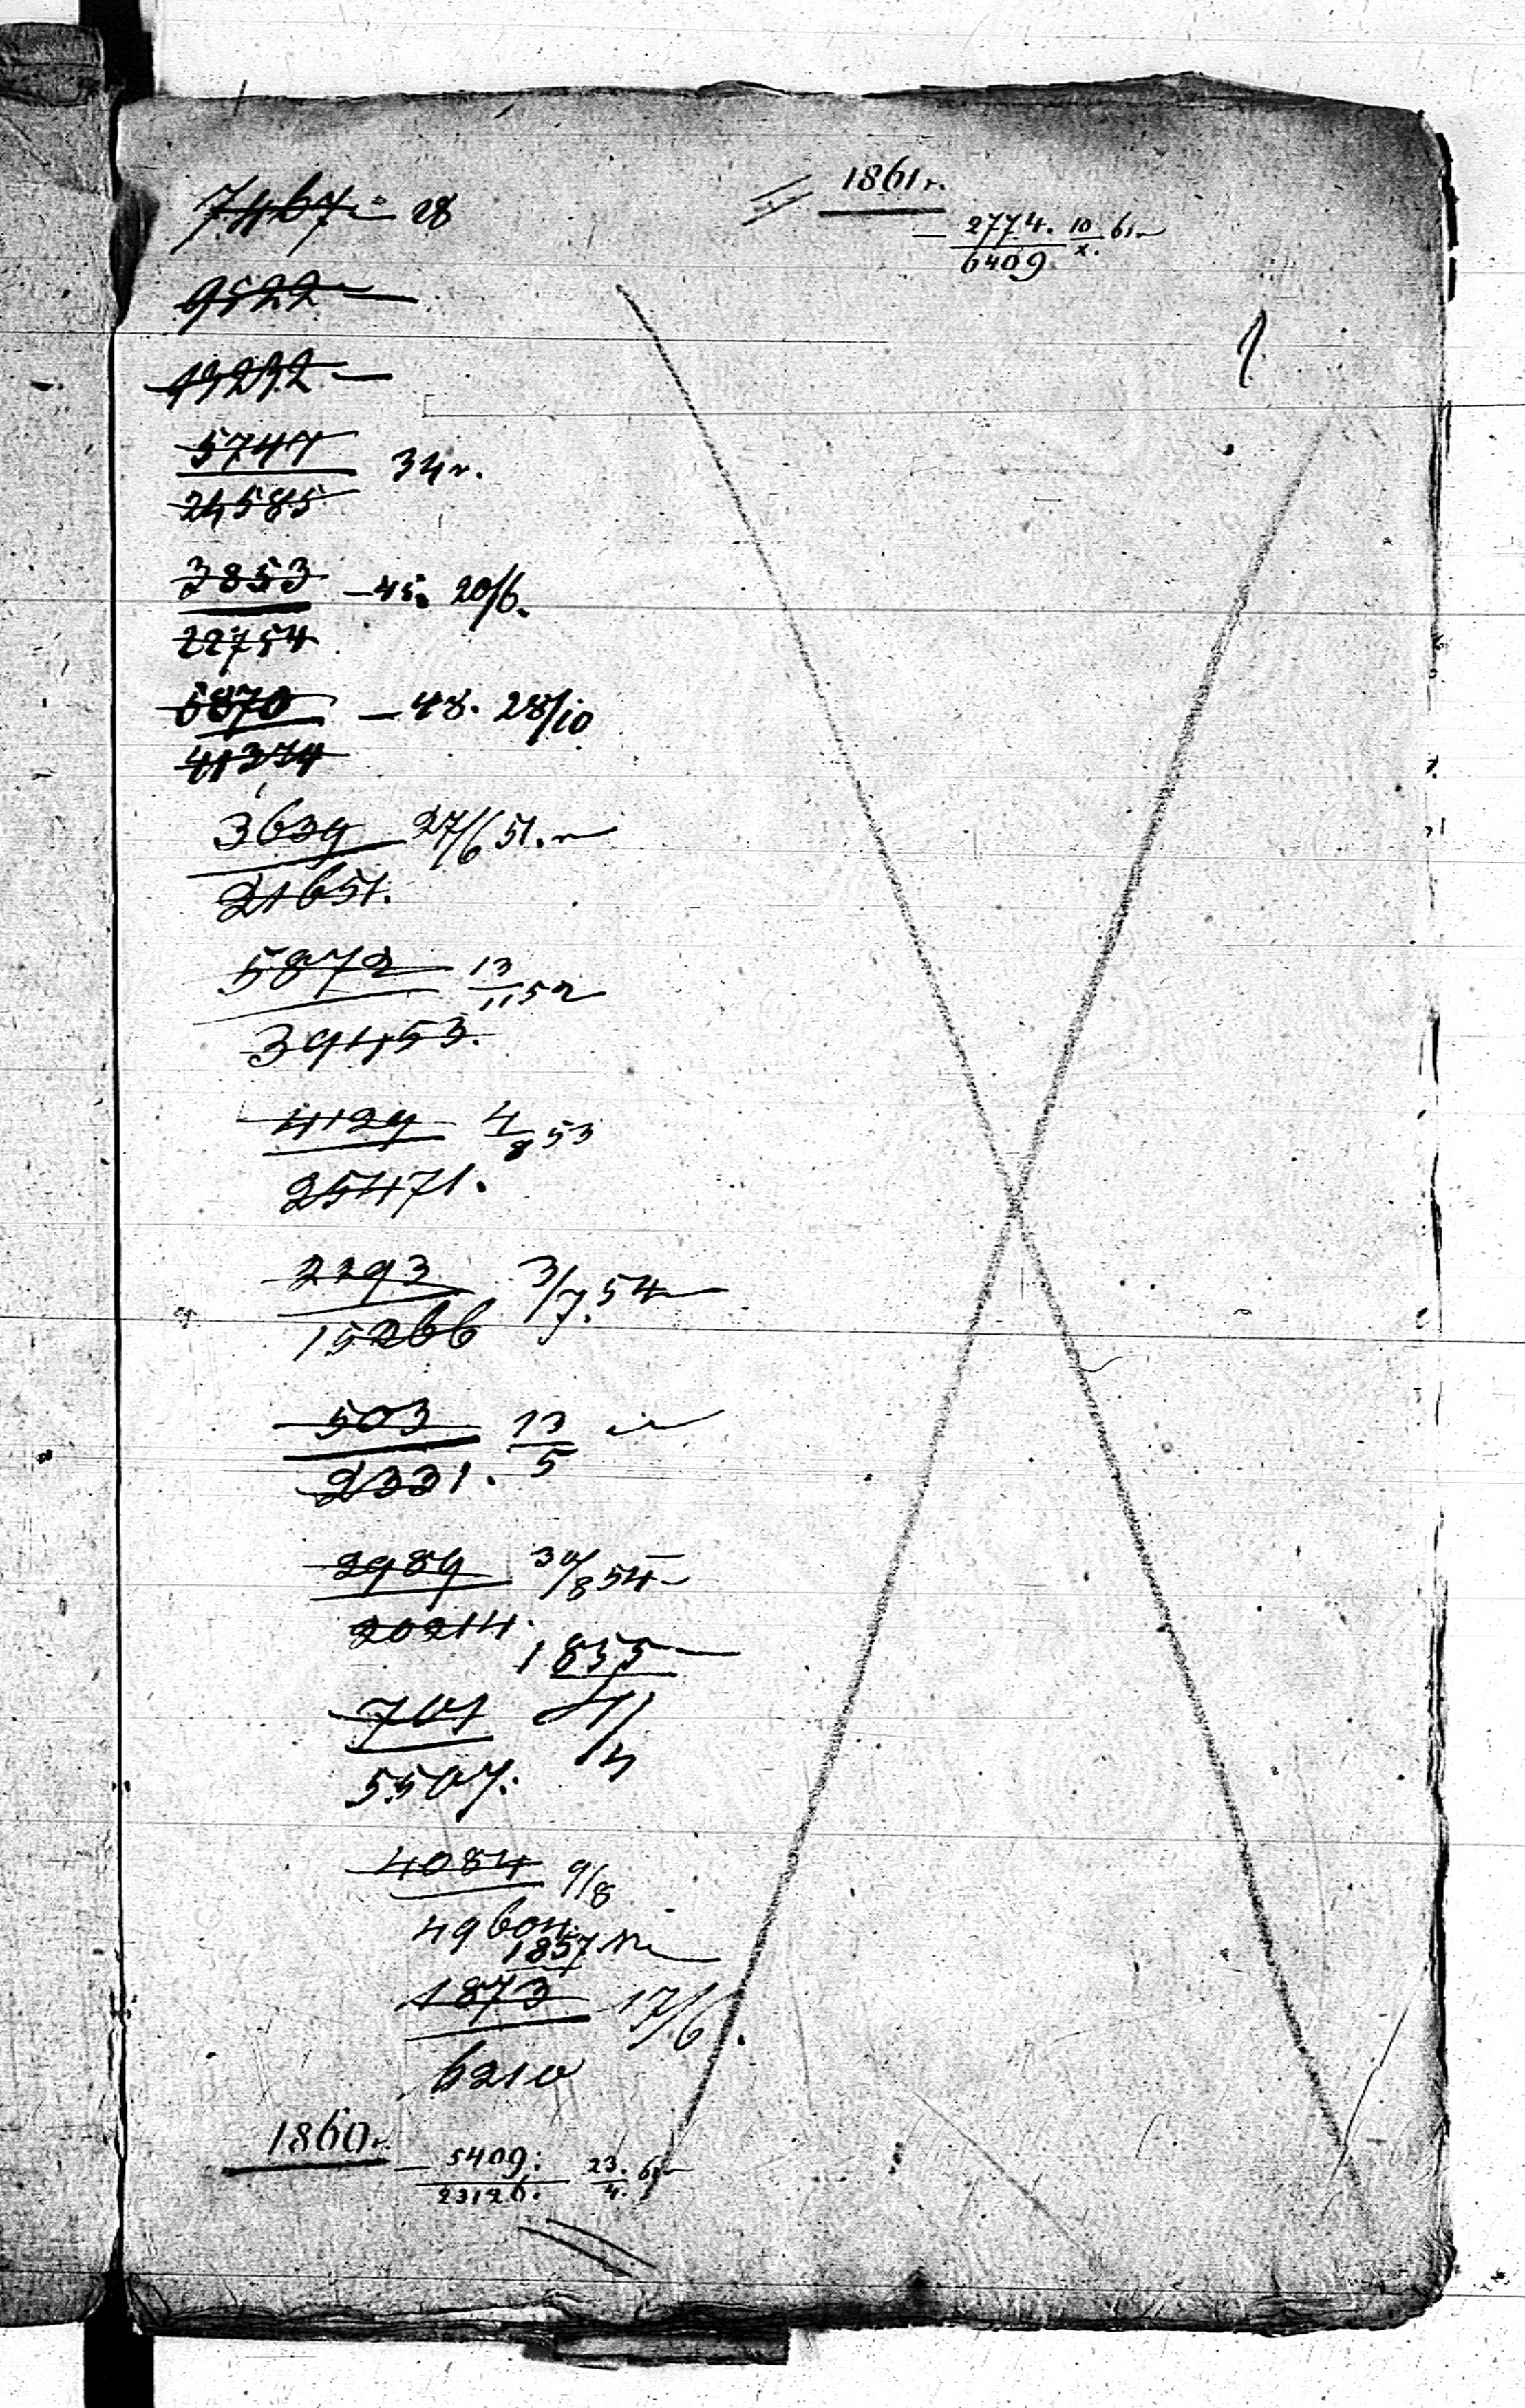 7467 28
9522
13232
5747 34г.
24585
3853 — 45. 20/6.
22754
5870 — 48. 28/10
41374
3639 27/6 51.
21651.
5872 13/11 52
39153.
4129 4/8 53
25471.
2293 3/7. 54
15266
503 13/5
2331.
2989 30/8 54
20214.
1855
701
5507.
4084 9/8
49604.
1857
1873 17/6.
6210
1860г.
— 5409. 23/4.
23126.
1861г.
— 2774. 10/x. 61
6409
1